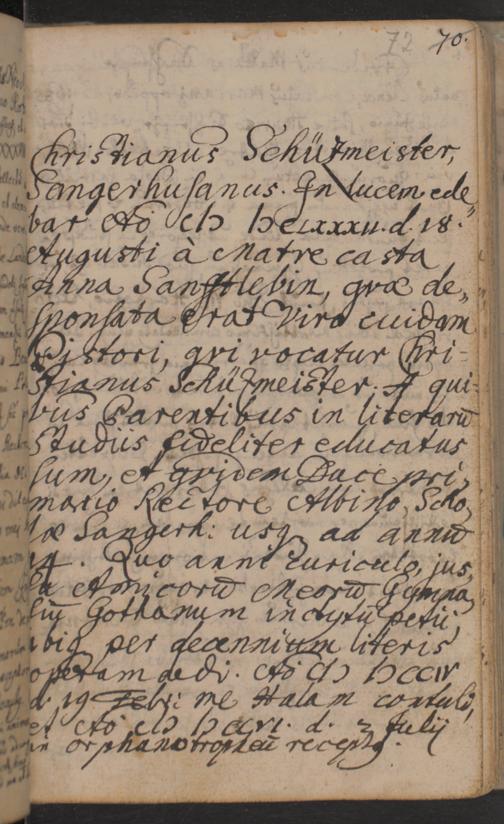 72 70.
Christianus Schützmeister,
Sangerhusanus. In lucem ede„
bar Aō CIƆ IƆCLXXXII. d. 18.
Augusti à Matre casta
Anna Sanfftlebin, qvæ de„
sponsata erat Viro cuidam
Pistori, qvi vocatur Chri-
stianus Schützmeister. A qui-
bus Parentibus in literarū
studiis fideliter educatus
sum, et qvidem Duce pri,
mario Rectore Albino, Scho,
læ Sangerh: usq ad annū
14. Quo anni curiculo, jus,
u Amicorū Meorū Gymna,
siū Gothanum inclytū petii,
ubiq per decennium literis
operam dedi. Aō CIƆ IƆCCIV
d. 19 Febr: me Halam contuli,
et Aō CIƆ IƆCCVI. d. 2 Julij
in orphanotropheū receptq.